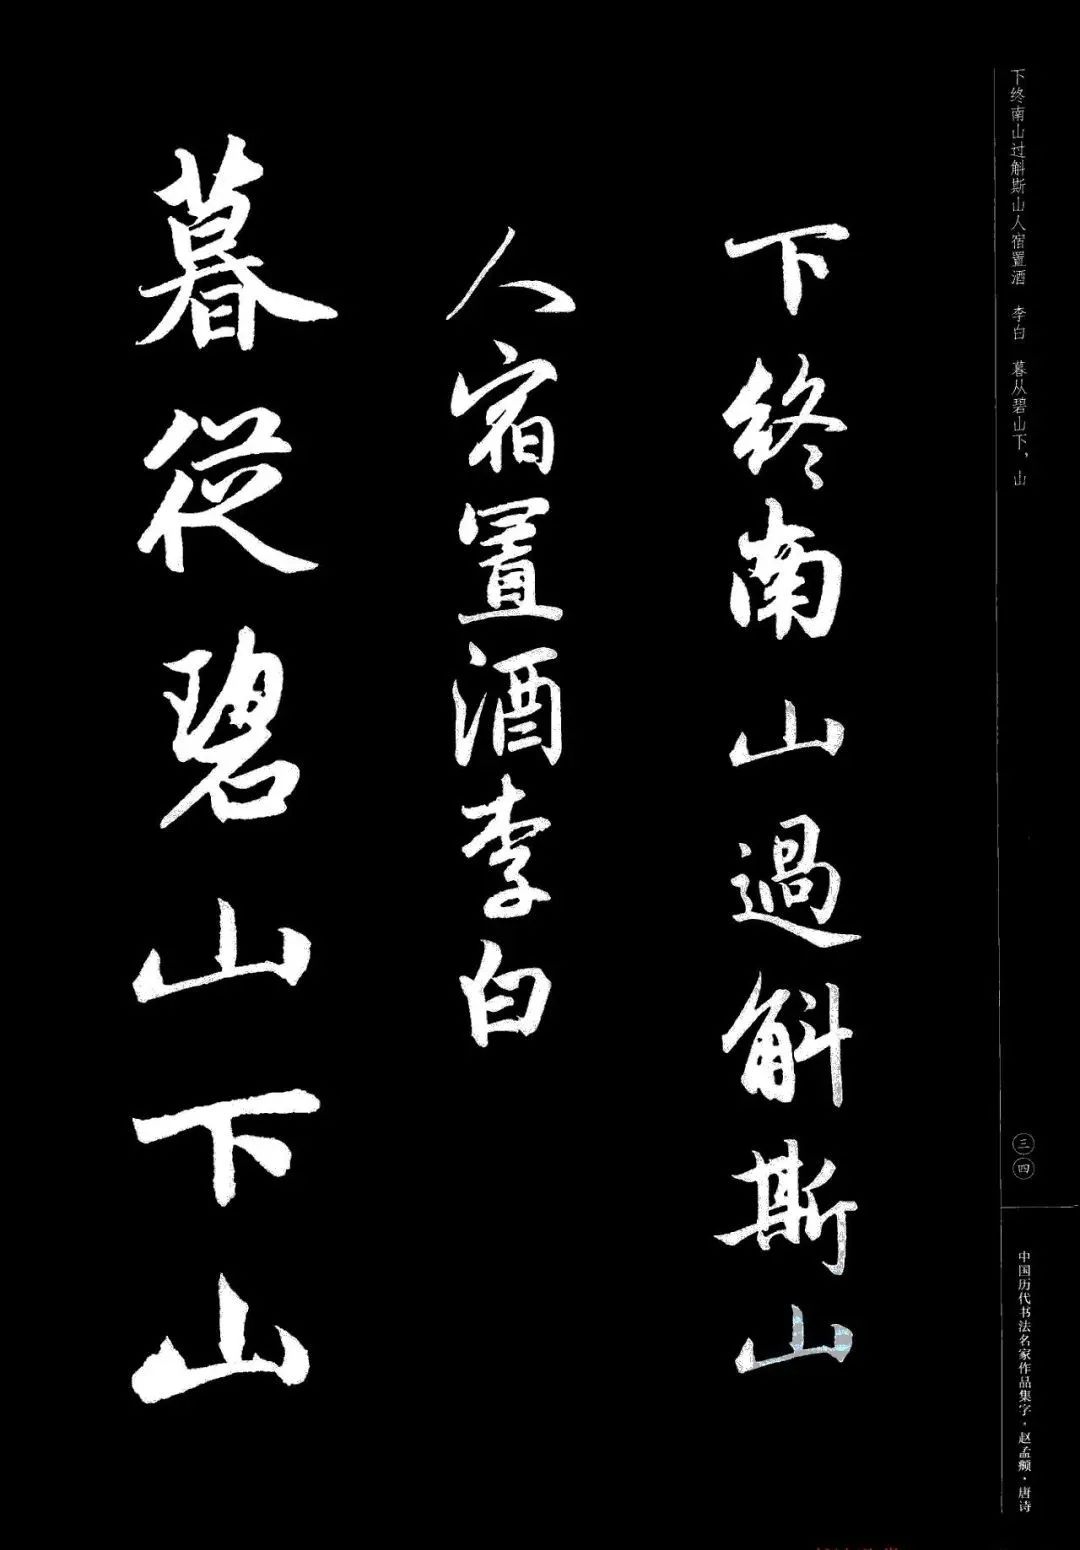 下终南山过斛斯山人宿置酒　李白　暮从碧山下，山
三四
中国历代书法名家作品集字·赵孟頫·唐诗
下終南山過斛斯山
人宿置酒李白
暮從碧山下山